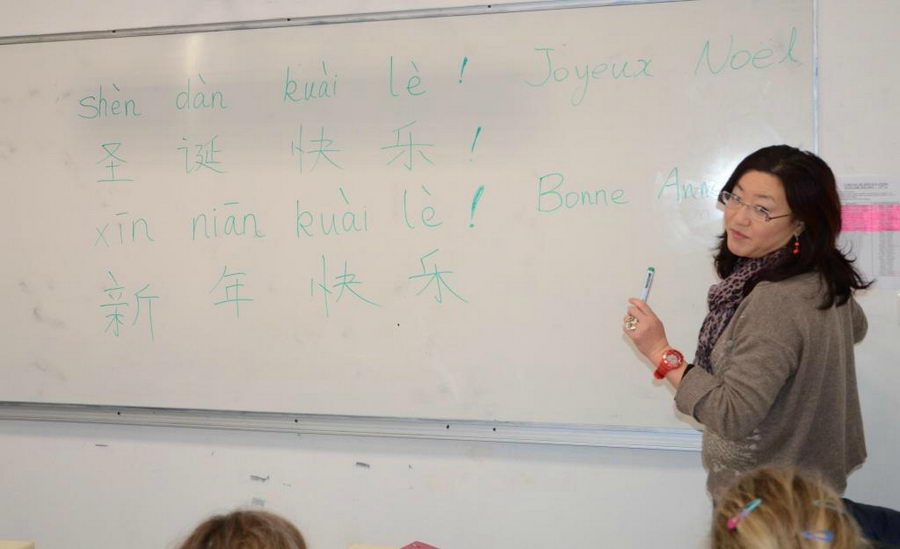 shèn dàn kuài lè ! Joyeux Noël
圣 诞 快 乐 !
xīn niān kuài lè ! Bonne
新 年 快 乐